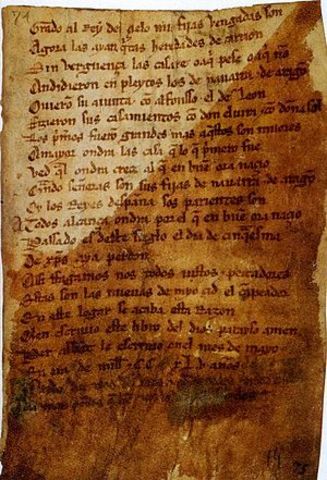 Grado al Rey del çielo mis fijas vengadas son
Agora las ayan quitas heredades de carrion
Sin verguença las casare o aqi pese o aqi non
Andidieron en pleytos los de nauarra τ de aragon
Ouieron su aiunta con alfonsso el de Leon
Fizieron sus casamientos con don eluira τ con doña sol
Los primeros fueron grandes mas aquestos son miiores
A mayor ondra las casa que lo que primero fue
Ved qual ondra creçe al que en buen ora naçio
Quando señoras son sus fijas de nauarra τ de aragon
Oy los Reyes despaña sos parientes son
A todos alcança ondra por el que en buen ora naçio
Passado es deste sieglo el dia de cinquaesma
De xpistus aya perdon
Assi ffagamos nos todos iustos τ peccadores
Estas son las nueuas de myo çid el campeador
En este logar se acaba esta Razon
Quien escriuio este libro del dios parayso amen
Per abbat le escriuio en el mes de mayo
En era de mill τ .C.C. xLv. años